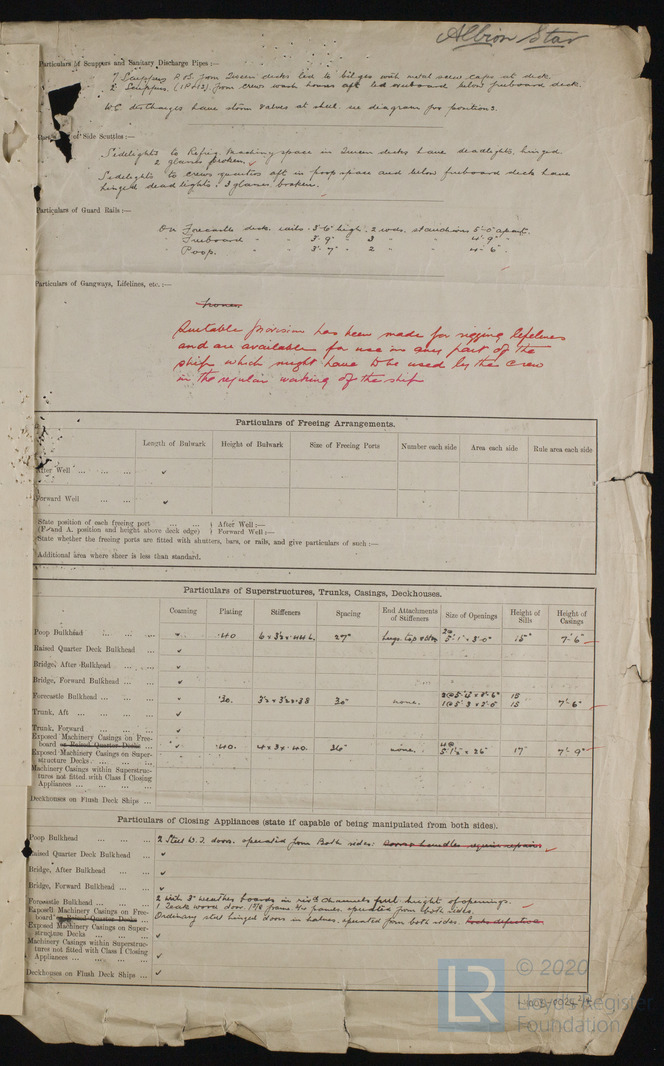 Albion Star
Particulars of Scuppers and Sanitary Discharge Pipes :—
7 Scuppers P & S. from Tween decks led to bilges with metal screw caps at deck.
2 Scuppers. (1P & 1S). from crews wash houses aft led overboard below freeboard deck.
W.C. discharges have storm valves at shell. see diagram for positions.
of Side Scuttles :—
Sidelights to Refrig. Machinery space in Tween decks have deadlights, hinged.
2 glasses broken.
Sidelights to crews quarters aft in poop space and below freeboard deck have
hinged deadlights. 3 glasses broken.
Particulars of Guard Rails :—
On Forecastle deck. rails. 3'-6" high. 2 rods. stanchions 5'-0" apart.
" Freeboard " " 3'-9" " 3 " " 4'-9" "
" Poop. " 3'-7" " 2 " " 4'-6" "
Particulars of Gangways, Lifelines, etc. :—
Suitable provision has been made for rigging lifelines
and are available for use in any part of the
ship which might have to be used by the crew
in the regular working of the ship
Particulars of Freeing Arrangements.
Length of Bulwark Height of Bulwark Size of Freeing Ports Number each side Area each side Rule area each side
After Well ... ... ... ✓
Forward Well ... ... ✓
State position of each freeing port ... ... ... } After Well :—
(F. and A. position and height above deck edge) } Forward Well :—
State whether the freeing ports are fitted with shutters, bars, or rails, and give particulars of such :—
Additional area where sheer is less than standard.
Particulars of Superstructures, Trunks, Casings, Deckhouses.
Coaming Plating Stiffeners Spacing End Attachments of Stiffeners Size of Openings Height of Sills Height of Casings
Poop Bulkhead ... ... ... ✓ ·40 6 x 3½ x ·44 L. 27" lugs top & btm 2@ 5'-1" x 3'-0" 15" 7'-6"
Raised Quarter Deck Bulkhead ... ✓
Bridge, After Bulkhead ... ... ✓
Bridge, Forward Bulkhead ... ✓
Forecastle Bulkhead ... ... ... ✓ ·30. 3½ x 3½ x ·38 30" none. 15
1@ 5'·3 x 2'·0" 15 7'-6"
Trunk, Aft ... ... ... ... ✓
Trunk, Forward ... ... ... ✓
Exposed Machinery Casings on Free-
board or Raised Quarter Decks ... ✓ ·40. 4 x 3 x ·40. 26" none. 4@ 5'·1½" x 26" 17" 7'-9"
Exposed Machinery Casings on Super-
structure Decks ... ... ...
Machinery Casings within Superstruc-
tures not fitted with Class I Closing
Appliances ... ... ... ...
Deckhouses on Flush Deck Ships ...
Particulars of Closing Appliances (state if capable of being manipulated from both sides).
Poop Bulkhead ... ... ... 2 Steel W.T. doors. operated from Both sides. Doors & handles require repairs.
Raised Quarter Deck Bulkhead ... ✓
Bridge, After Bulkhead ... ... ✓
Bridge, Forward Bulkhead ... ✓
Forecastle Bulkhead ... ... ... 2 with 3" weather boards in channels full height of openings.
1 Teak wood door. operated from both sides.
Exposed Machinery Casings on Free-
board or Raised Quarter Decks ... Ordinary steel hinged doors in halves, operated from both sides. Locks defective.
Exposed Machinery Casings on Super-
structure Decks ... ... ... ✓
Machinery Casings within Superstruc-
tures not fitted with Class I Closing
Appliances ... ... ... ... ✓
Deckhouses on Flush Deck Ships ... ✓
LR
© 2020
Lloyd's Register
Foundation